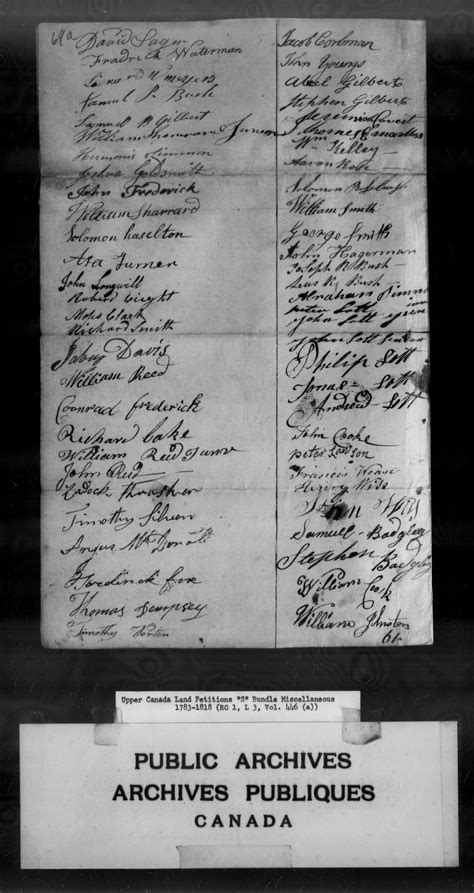 61a
David Sager
Fradrick Waterman
Lenard
Samul P. Bush
Samuel W Gilbert
William Sharrard Junior
Joshua Goldsmith
John Frederick
William Sharrard
Solomon haselton
Asa Turner
John Longwill
Robert Wright
Mops Clark
Richard Smith
Jabuy Davis
William Reed
Coonrad frederick
Richard Cake
William Reed Junr
John Reed
Zdock Thrasher
Timothy
Angus
Frederick
Thomas Dempsey
Timothy Porter
Jacob Corbman
John Youngs
Abel Gilbert
Stephen Gilbert
Jeremia
Thomas
Wm Kelley
Aaron Rose
Solomon
William Smith
George Smith
John Hagerman
Joseph R Bush
Bush
Abraham
peter Lott
John Lott
John Lott
Philip Lott
Jonas Lott
Andrew Lott
John Cooke
Peter Lawson
Francis Wease
Henry
John
Samuel Badgley
Stephen Badgley
William Cook
William Johnston
61
Upper Canada Land Petitions "S" Bundle Miscellaneous
1783-1818 (RG 1, L 3, Vol. 446 (a))
PUBLIC ARCHIVES
ARCHIVES PUBLIQUES
CANADA